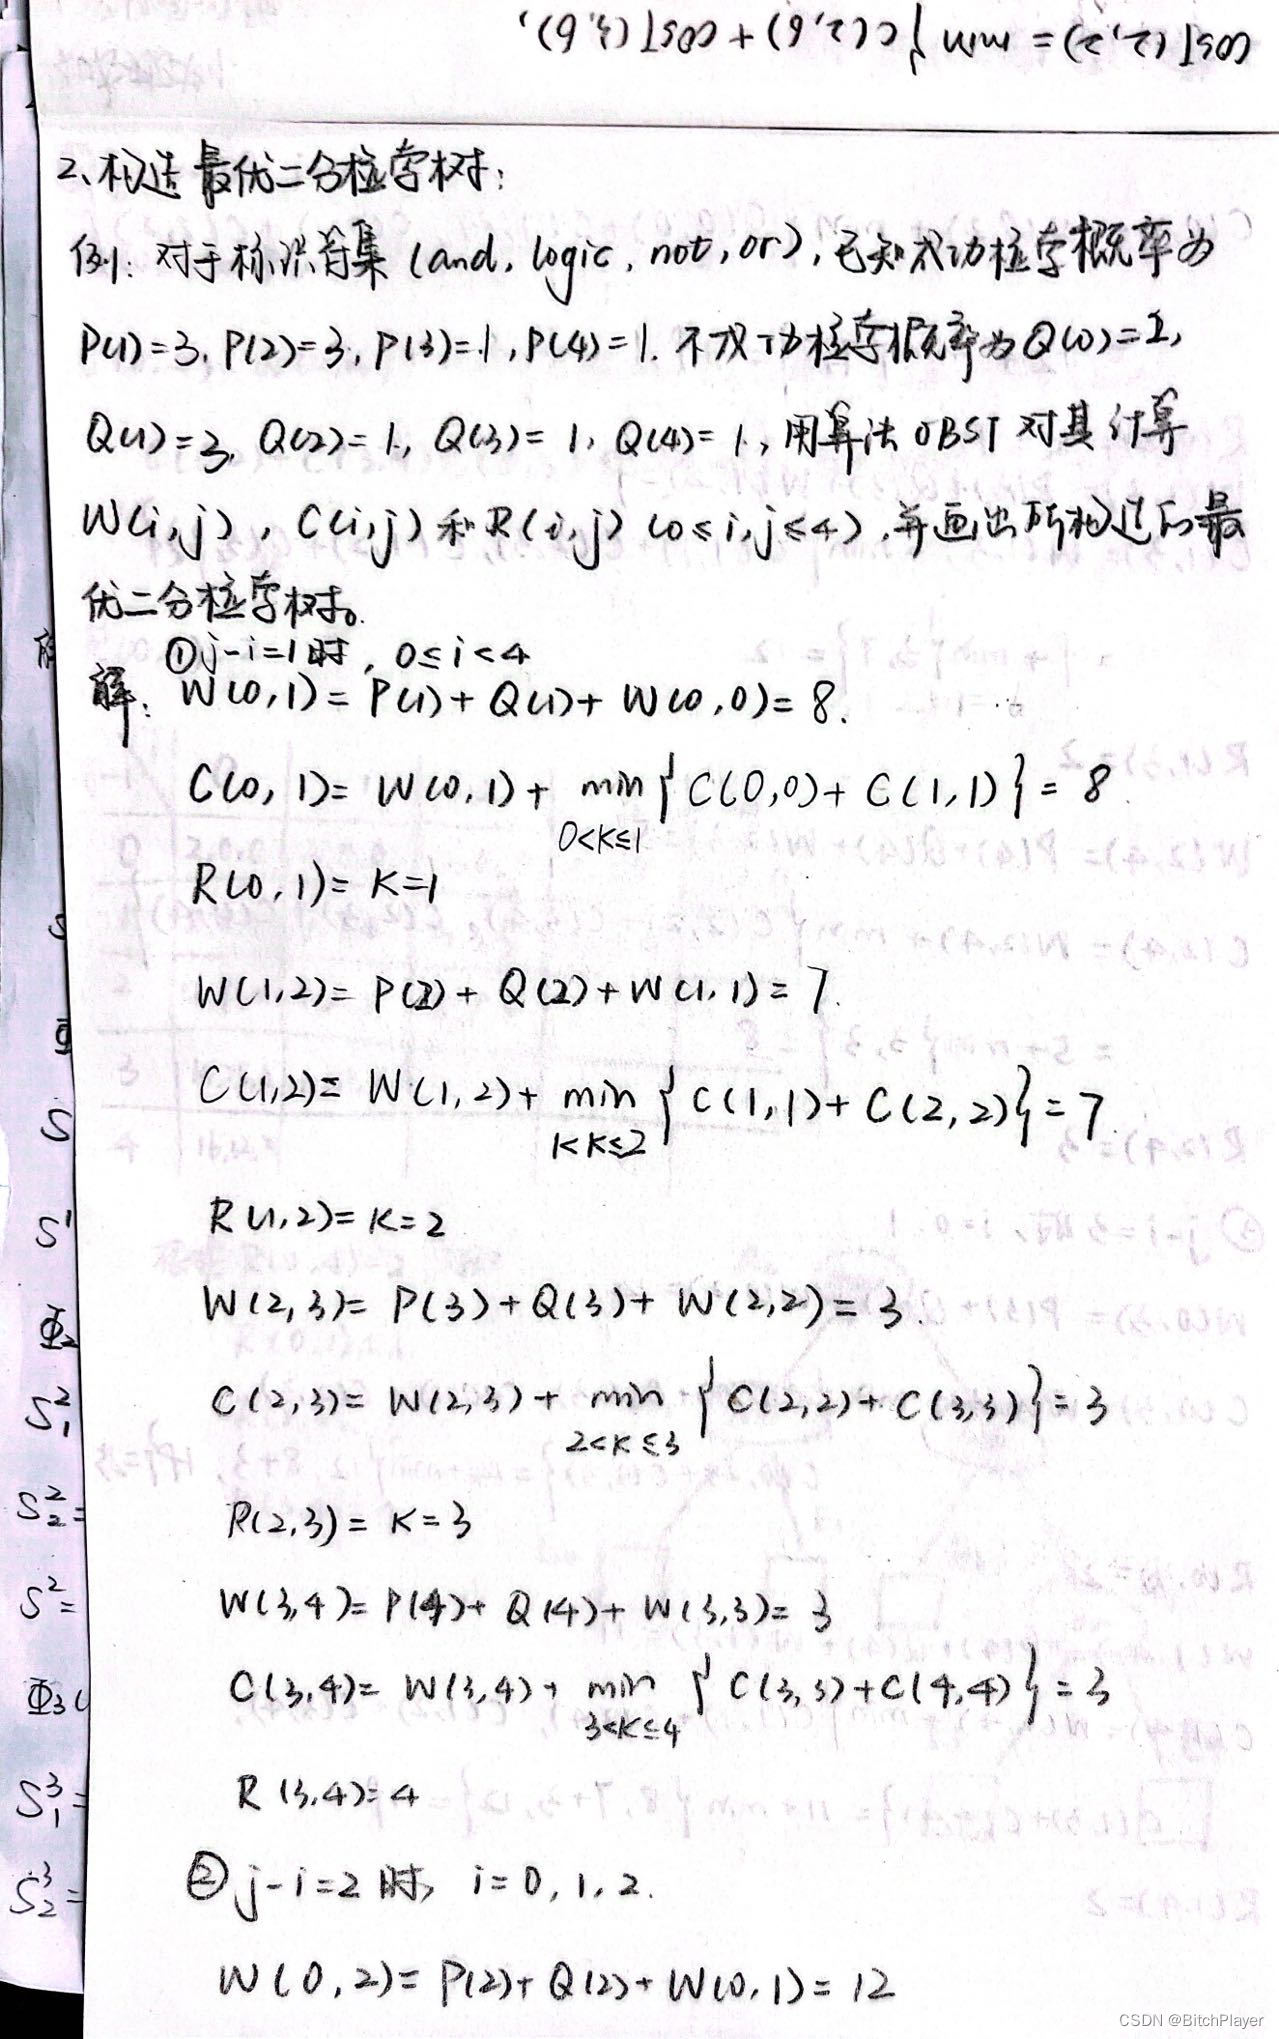 COST(2,2)=min{C(2,6)+COST(3,6),
2、构造最优二分检学树:
例:对于标识符集(and, logic, not, or),已知成功检学概率为
P(1)=3, P(2)=3, P(3)=1, P(4)=1. 不成功检学概率为Q(0)=2,
Q(1)=3, Q(2)=1, Q(3)=1, Q(4)=1, 用算法OBST对其计算
W(i,j), C(i,j)和R(i,j)(0≤i,j≤4),并画出所构造的最
优二分检学树。
①j-i=1时, 0≤i<4
解: W(0,1)=P(1)+Q(1)+W(0,0)=8.
C(0,1)=W(0,1)+min{C(0,0)+C(1,1)}=8
0<K≤1
R(0,1)=K=1
W(1,2)=P(2)+Q(2)+W(1,1)=7.
C(1,2)=W(1,2)+min{C(1,1)+C(2,2)}=7
1<K≤2
R(1,2)=K=2
W(2,3)=P(3)+Q(3)+W(2,2)=3.
C(2,3)=W(2,3)+min{C(2,2)+C(3,3)}=3
2<K≤3
R(2,3)=K=3
W(3,4)=P(4)+Q(4)+W(3,3)=3
C(3,4)=W(3,4)+min{C(3,3)+C(4,4)}=3
3<K≤4
R(3,4)=4
②j-i=2时, i=0,1,2.
W(0,2)=P(2)+Q(2)+W(0,1)=12
S
S¹
S²₁
S²₂=
S²=
S³₁=
S³₂=
CSDN @BitchPlayer